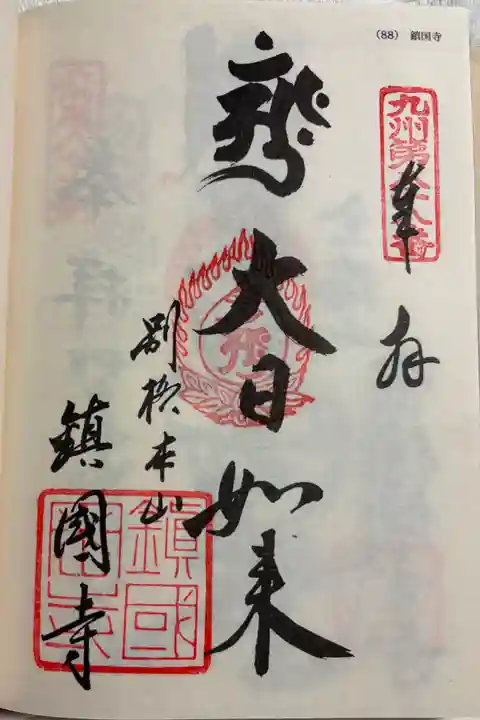 (88) 鎮国寺
奉拝
大日如来
別格本山
鎮國寺
鎮國寺